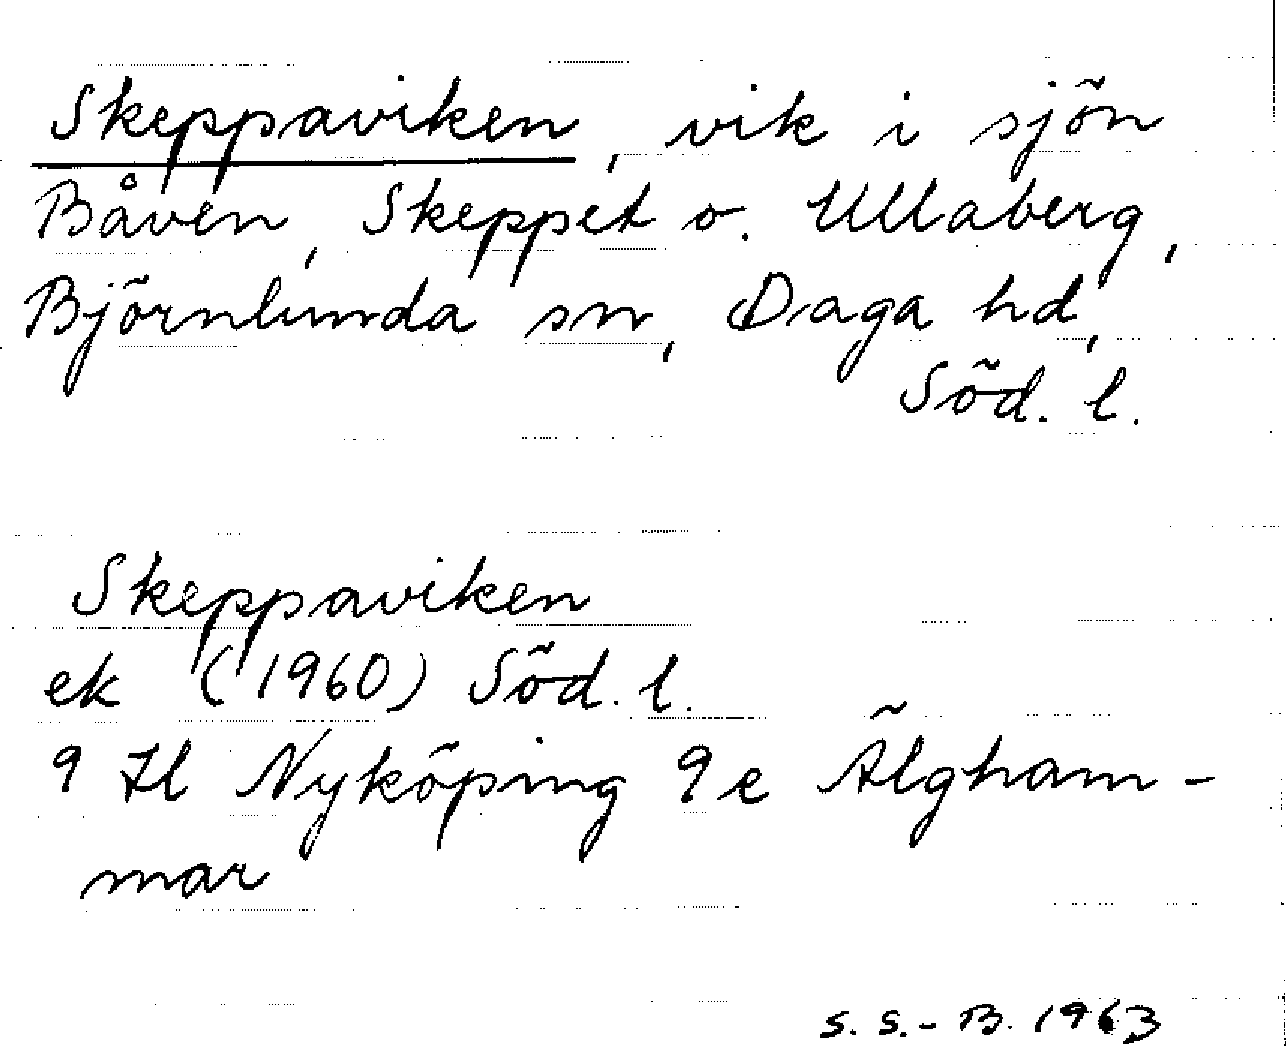 Skeppaviken, vik i sjön
Båven, Skeppet o. Ullaberg,
Björnlunda sn, Daga hd,
Söd. l.
Skeppaviken
ek (1960) Söd. l.
9 Hl Nyköping 9e Älgham-
mar
S. S.-B. 1963